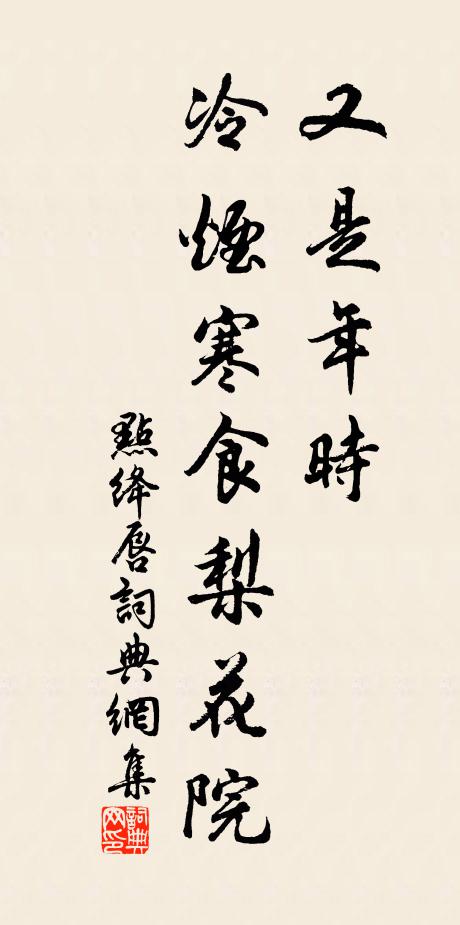 又是年時
冷煙寒食梨花院
點絳唇詞典網集
詞典
網印